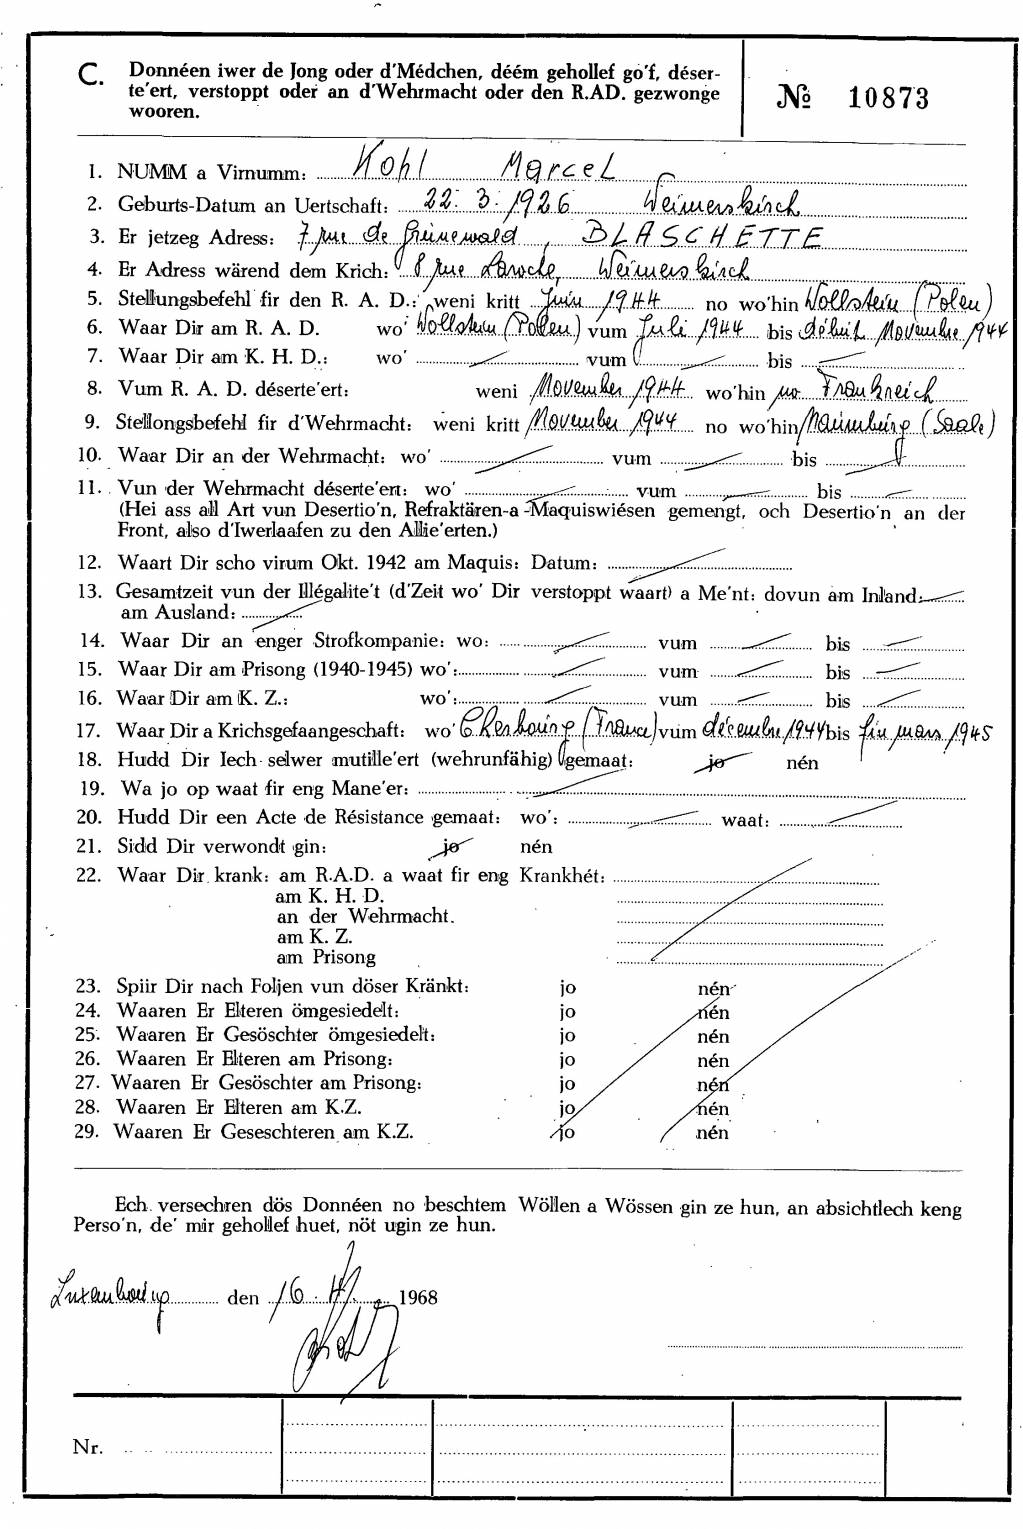 C. Donnéen iwer de Jong oder d'Médchen, déém gehollef go'f, déser-
te'ert, verstoppt oder an d'Wehrmacht oder den R.AD. gezwonge
wooren.
№ 10873
1. NUMM a Virnumm: Kohl Marcel
2. Geburts-Datum an Uertschaft: 22. 3. 1926 Weimerskirch
3. Er jetzeg Adress: 7 rue de Grünewald, BLASCHETTE
4. Er Adress wärend dem Krich: 8 rue Laroche, Weimerskirch
5. Stellungsbefehl fir den R. A. D.: weni kritt Juin 1944 no wo'hin Wollstein (Polen)
6. Waar Dir am R. A. D. wo' Wollstein (Polen) vum Juli 1944 bis début Novembre 1944
7. Waar Dir am K. H. D.: wo' vum bis
8. Vum R. A. D. déserte'ert: weni November 1944 wo'hin no Frankreich
9. Stellongsbefehl fir d'Wehrmacht: weni kritt November 1944 no wo'hin Naumburg (Saale)
10. Waar Dir an der Wehrmacht: wo' vum bis
11. Vun der Wehrmacht déserte'ert: wo' vum bis
(Hei ass all Art vun Desertio'n, Refraktären-a -Maquiswiésen gemengt, och Desertio'n an der
Front, also d'Iwerlaafen zu den Allie'erten.)
12. Waart Dir scho virum Okt. 1942 am Maquis: Datum:
13. Gesamtzeit vun der Illégalite't (d'Zeit wo' Dir verstoppt waart) a Me'nt: dovun am Inland:
am Ausland:
14. Waar Dir an enger Strofkompanie: wo: vum bis
15. Waar Dir am Prisong (1940-1945) wo': vum bis
16. Waar Dir am K. Z.: wo': vum bis
17. Waar Dir a Krichsgefaangeschaft: wo' Cherbourg (France) vum décembre 1944 bis fin mars 1945
18. Hudd Dir Iech selwer mutille'ert (wehrunfähig) gemaat: jo nén
19. Wa jo op waat fir eng Mane'er:
20. Hudd Dir een Acte de Résistance gemaat: wo': waat:
21. Sidd Dir verwondt gin: jo nén
22. Waar Dir krank: am R.A.D. a waat fir eng Krankhét:
am K. H. D.
an der Wehrmacht.
am K. Z.
am Prisong
23. Spiir Dir nach Foljen vun döser Kränkt: jo nén
24. Waaren Er Elteren ömgesiedelt: jo nén
25. Waaren Er Gesöschter ömgesiedelt: jo nén
26. Waaren Er Elteren am Prisong: jo nén
27. Waaren Er Gesöschter am Prisong: jo nén
28. Waaren Er Elteren am K.Z. jo nén
29. Waaren Er Geseschteren am K.Z. jo nén
Ech versechren dös Donnéen no beschtem Wöllen a Wössen gin ze hun, an absichtlech keng
Perso'n, de' mir gehollef huet, nöt ugin ze hun.
Luxembourg den 16. 1968
Nr.